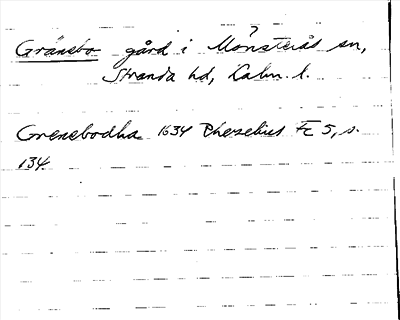 Gränsbo gård i Mönsterås sn,
Stranda hd, Kalm. l.
Grenebodha 1634 Pherelius FE 5, s.
134.